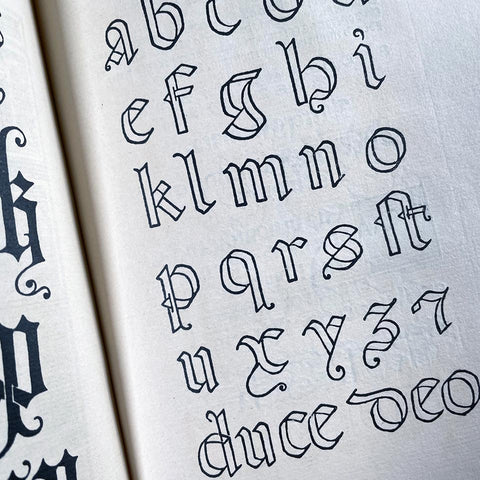 a b c d
e f g h i
k l m n o
p q r s ſt
u x y z ⁊
duce deo